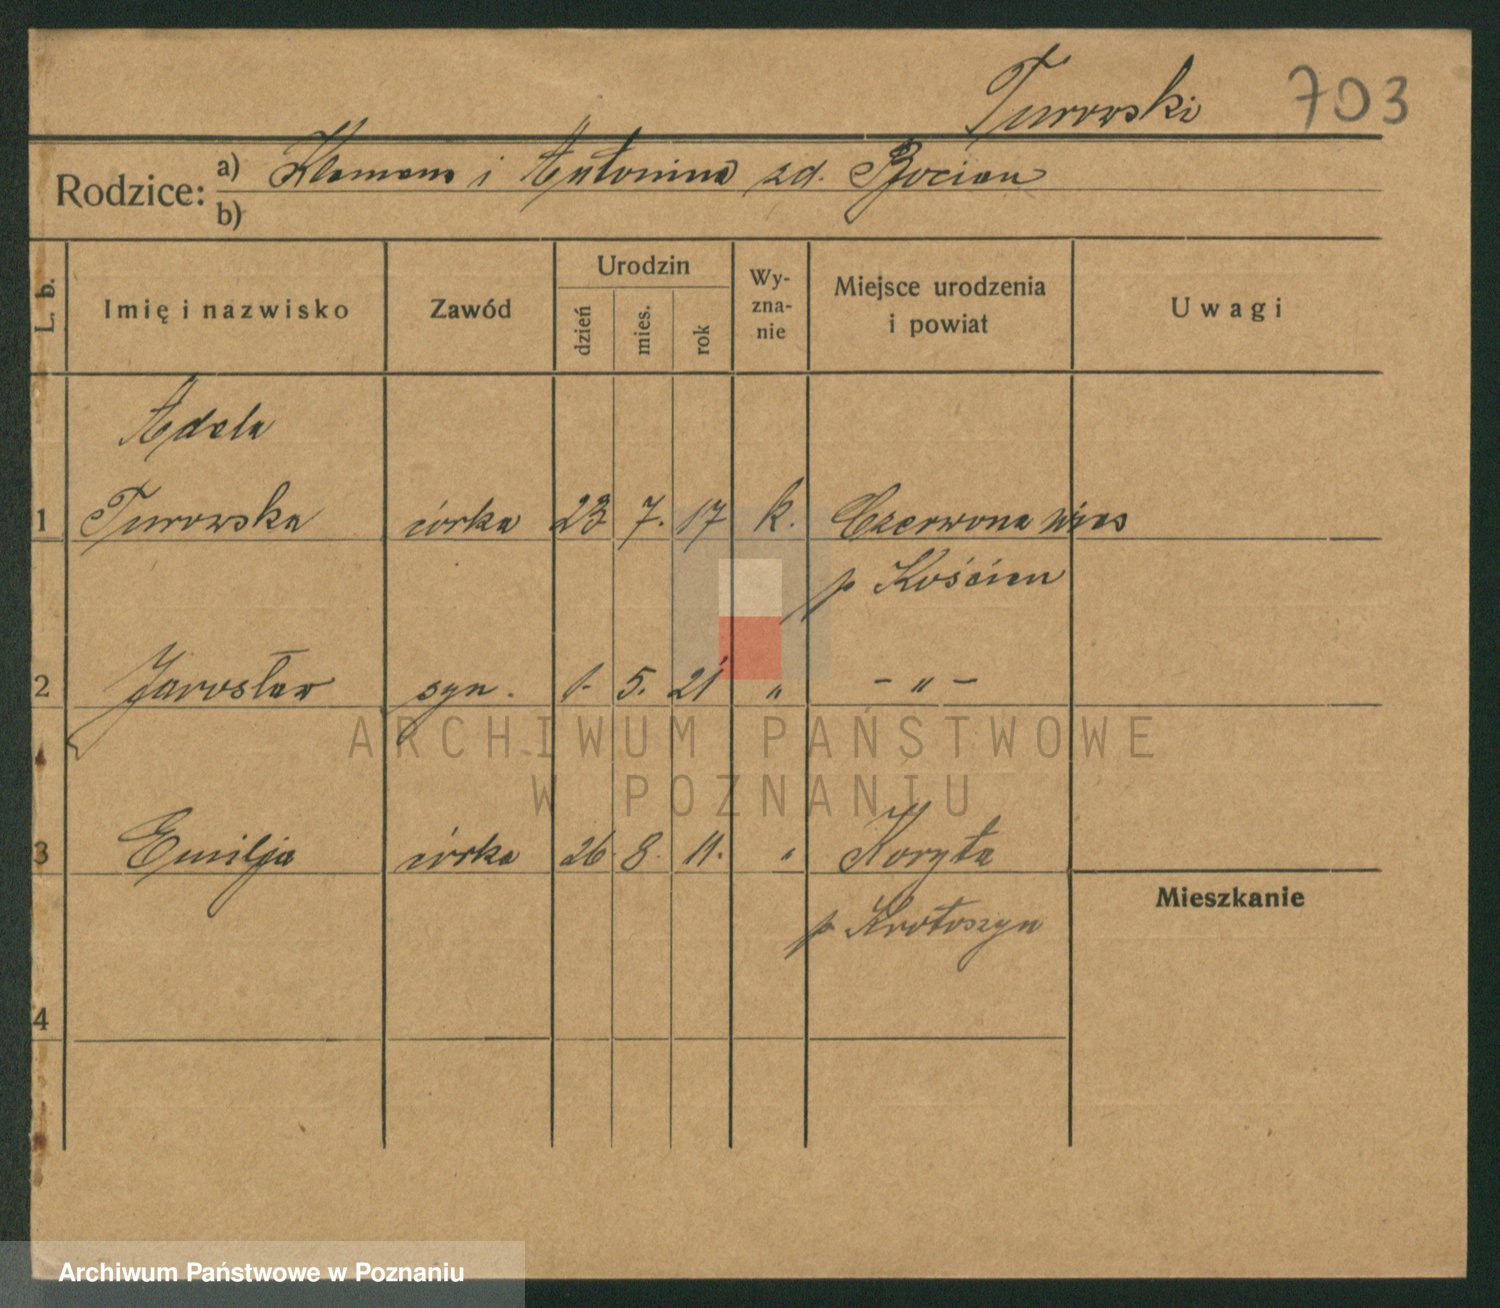 Turowski 703
Rodzice: a) Klemens i Antonina zd. Bocian
b)
L. b.
Imię i nazwisko
Zawód
Urodzin
dzień
mies.
rok
Wy-
zna-
nie
Miejsce urodzenia
i powiat
Uwagi
Adela
1 Turowska córka 23 7. 17 k. Czerwona wieś
p Kościan
2 Jarosław syn. 1. 5. 21 " - " -
ARCHIWUM PAŃSTWOWE
W POZNANIU
3 Emilja córka 26. 8. 11. " Koryta
p Krotoszyn
Mieszkanie
4
Archiwum Państwowe w Poznaniu